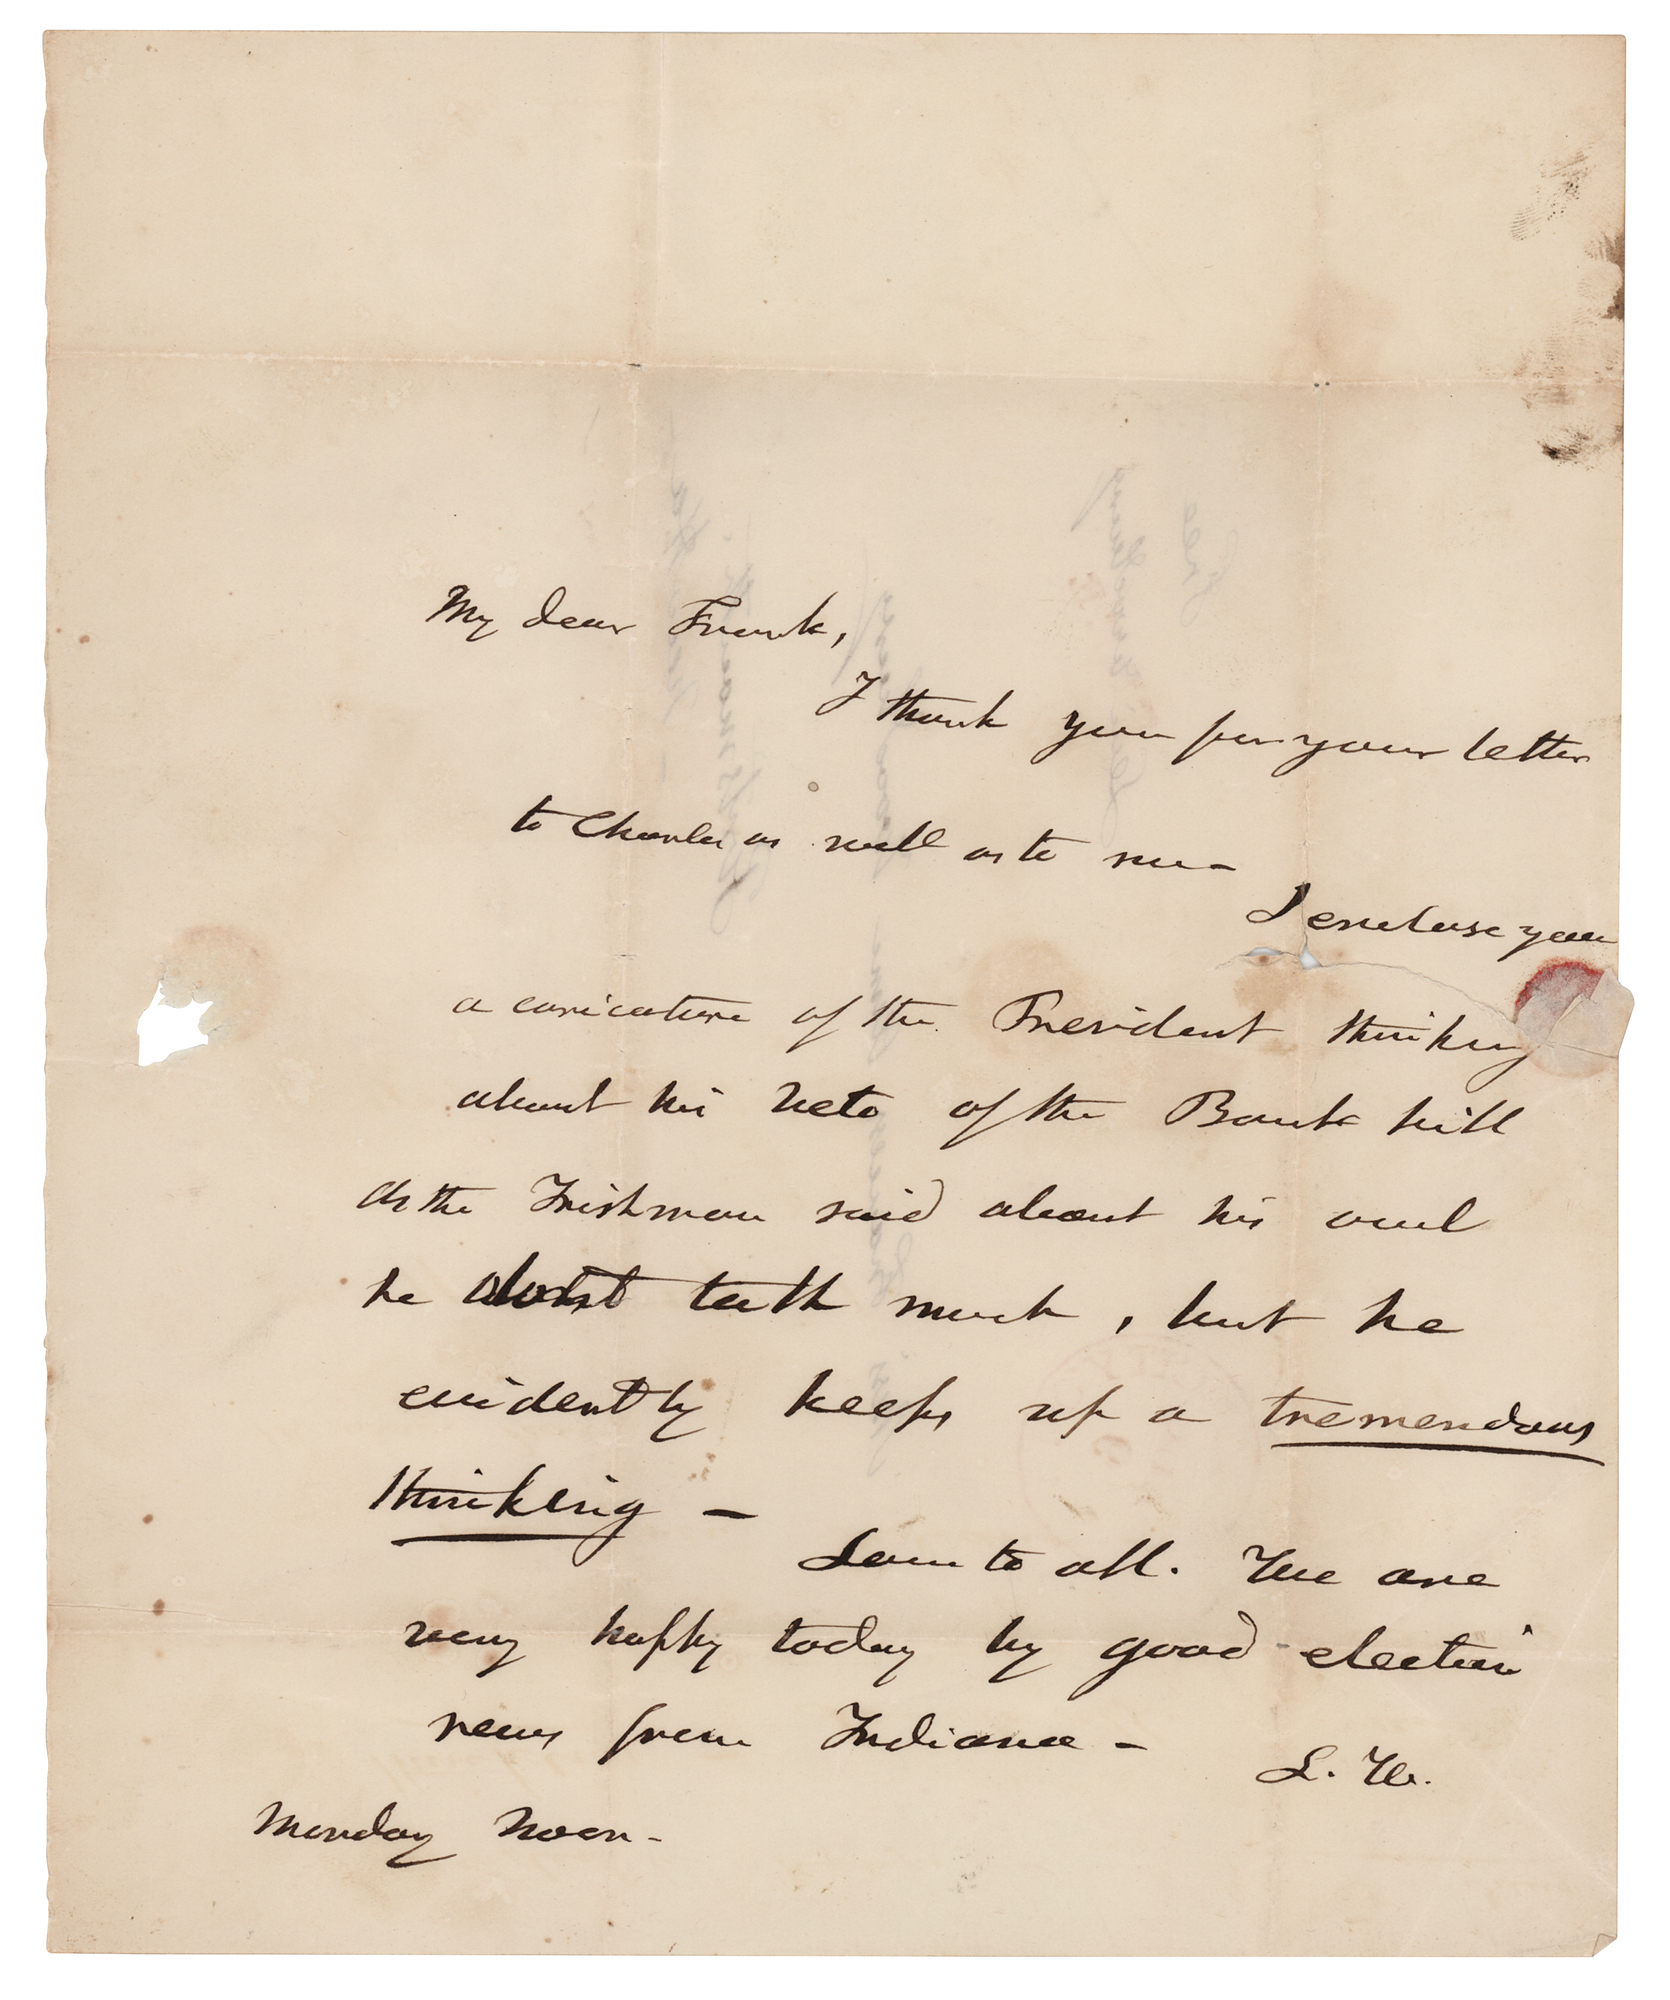 My dear Frank,
I thank you for your letter
to Charles as well as to me –
I enclose you
a caricature of the President thinking
about his Veto of the Bank bill
As the Irishman said about his owl
he talk much, but he
evidently keeps up a tremendous
thinking –
Love to all. We are
very happy today by good election
news from Indiana –
L. W.
Monday Noon –